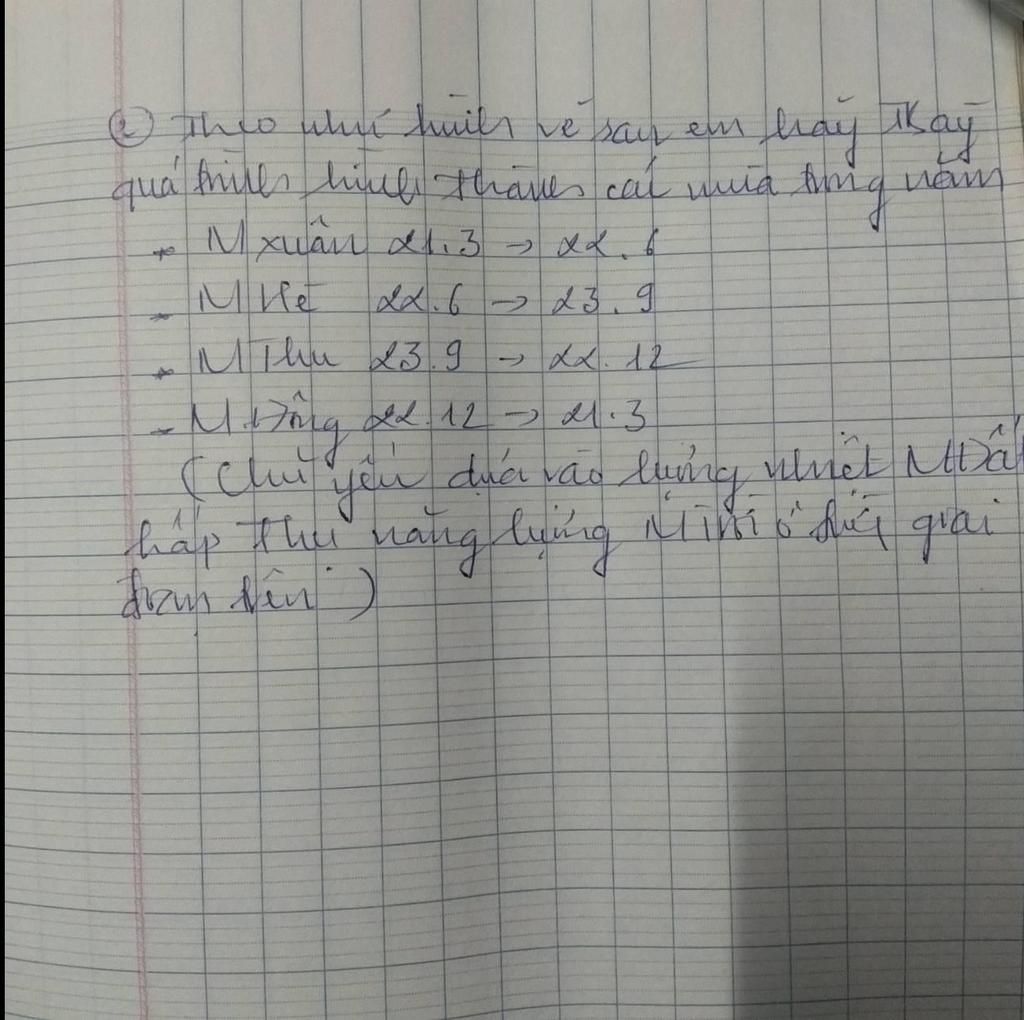 ② Theo như hình vẽ sau em hãy TBày
quá trình hình thành các mùa trong năm
- M xuân 21.3 → 22.6
- M Hè 22.6 → 23.9
- M Thu 23.9 → 22.12
- M Đông 22.12 → 21.3
(Chủ yếu dựa vào lượng nhiệt MĐất
hấp thu năng lượng MTrời ở từng giai
đoạn trên)